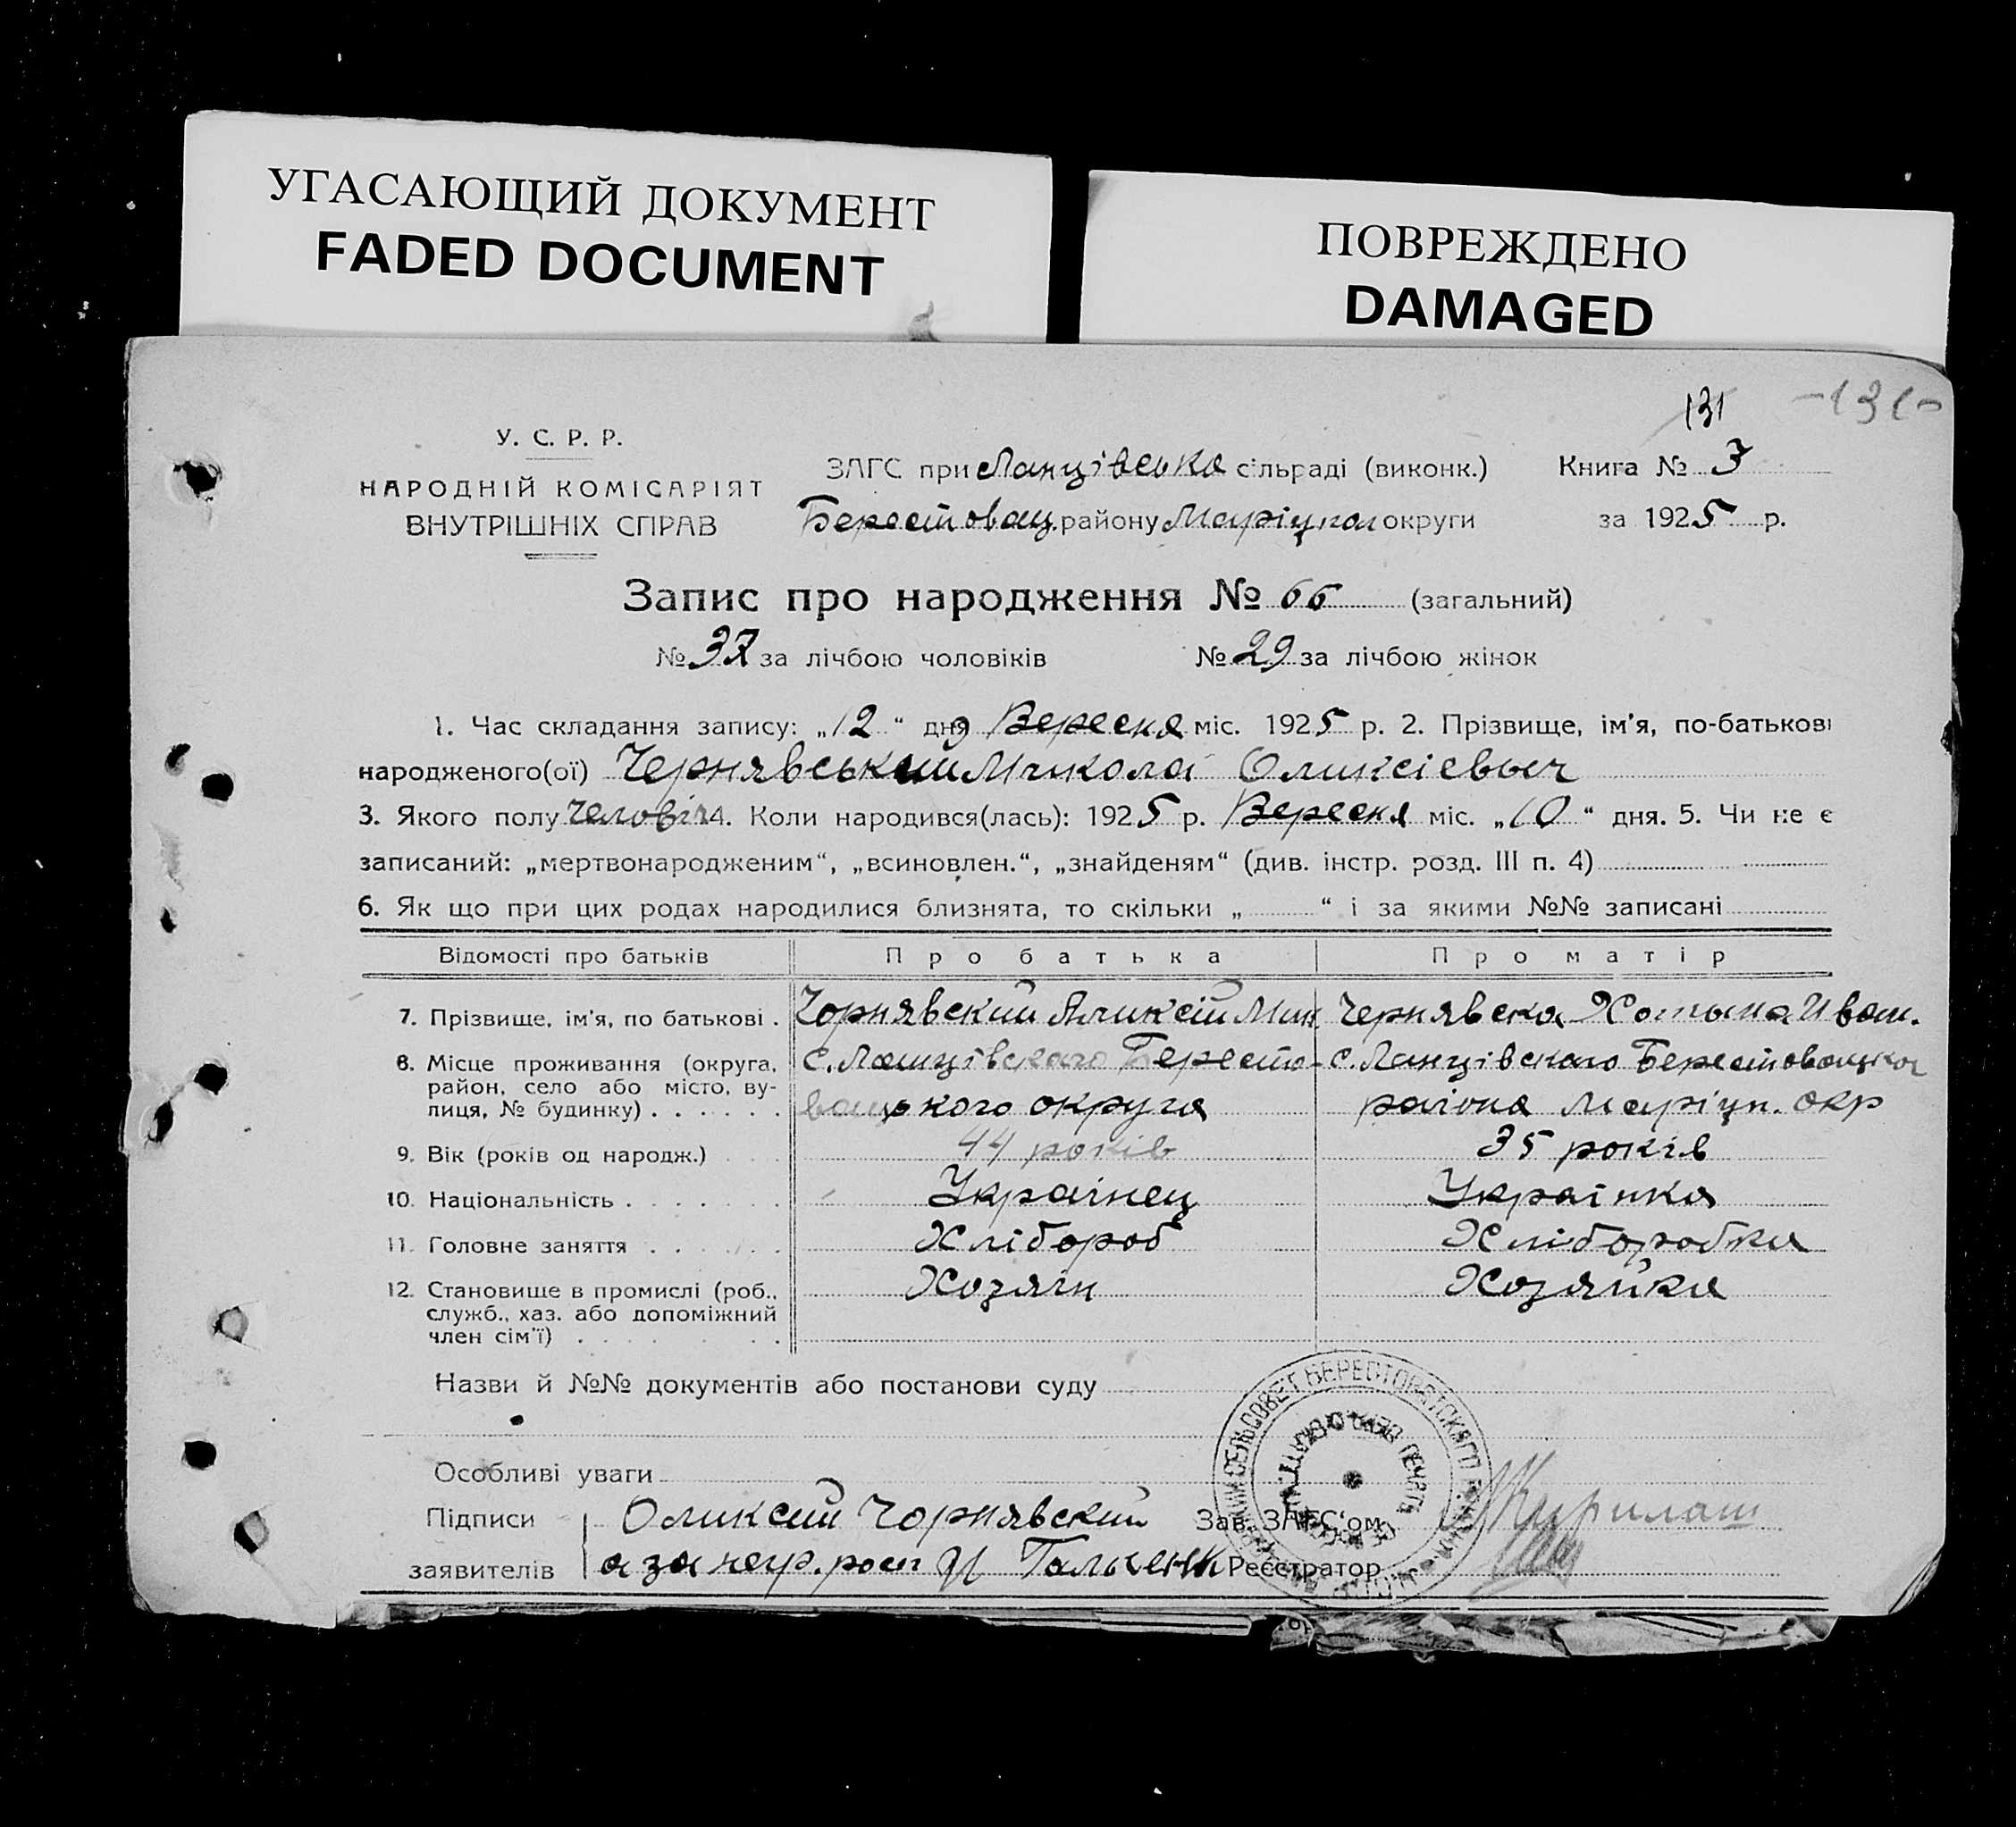 УГАСАЮЩИЙ ДОКУМЕНТ
FADED DOCUMENT
ПОВРЕЖДЕНО
DAMAGED
131 -131-
У. С. Р. Р.
НАРОДНІЙ КОМІСАРІЯТ
ВНУТРІШНІХ СПРАВ
ЗАГС при Ланцівська сільраді (виконк.) Книга № 3
Берестовац. району Маріупол округи за 1925 р.
Запис про народження № 66 (загальний)
№ 37 за лічбою чоловіків № 29 за лічбою жінок
1. Час складання запису: „12“ дня Вересня міс. 1925 р. 2. Прізвище, ім'я, по-батькові
народженого(ої) Чернявський Микола Оликсіевыч
3. Якого полу человіч 4. Коли народився(лась): 1925 р. Вересня міс. „10“ дня. 5. Чи не є
записаний: „мертвонародженим“, „всиновлен.“, „знайденям“ (див. інстр. розд. III п. 4)
6. Як що при цих родах народилися близнята, то скільки „ “ і за якими №№ записані
Відомості про батьків Про батька Про матір
7. Прізвище, ім'я, по батькові . Чорнявский Аликсій Мик Чернявска Хотына Иван.
8. Місце проживання (округа, район, село або місто, вулиця, № будинку) . . . . . . с. Ланцівского Берестовацького округа с. Ланцівского Берестовацког раіона Маріуп. окр
9. Вік (років од народж.) . . . 44 років 35 років
10. Національність . . . . . . . Украінец Украінка
11. Головне заняття . . . . . . Хлібороб Хліборобка
12. Становище в промислі (роб., служб., хаз. або допоміжний член сім'ї) . . . . . . . Хозяін Хозяйка
Назви й №№ документів або постанови суду
Особливі уваги
Підписи Оликсий Чорнявский Зав. ЗАГС'ом Кирилаш
заявителів а за неур. рост Галькенк Реєстратор
СЕЛЬСОВЕТ БЕРЕСТОВАТСКАГО
ПЕЧАТЬ